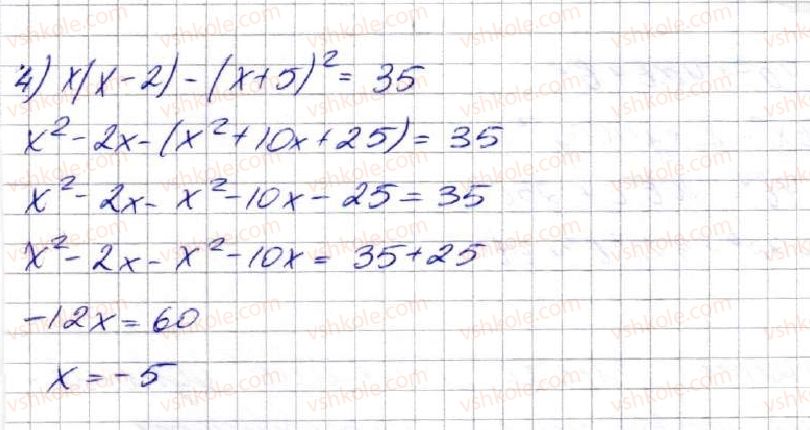 4) x(x-2)-(x+5)²=35
x²-2x-(x²+10x+25)=35
x²-2x-x²-10x-25=35
x²-2x-x²-10x=35+25
-12x=60
x=-5